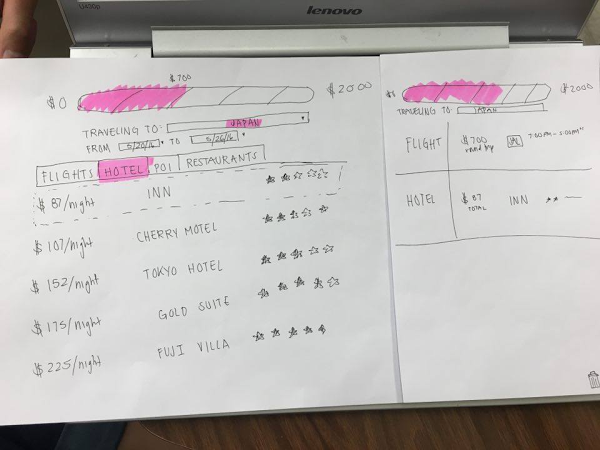 lenovo
$700
$0 $2000
TRAVELING TO: JAPAN
FROM 5/20/16 TO 5/26/16
FLIGHTS HOTEL POI RESTAURANTS
$87/night INN
$107/night CHERRY MOTEL
$152/night TOKYO HOTEL
$175/night GOLD SUITE
$225/night FUJI VILLA
$2000
TRAVELING TO JAPAN
FLIGHT $700
round trip
7:00PM - 5:00AM
HOTEL $87 INN
TOTAL